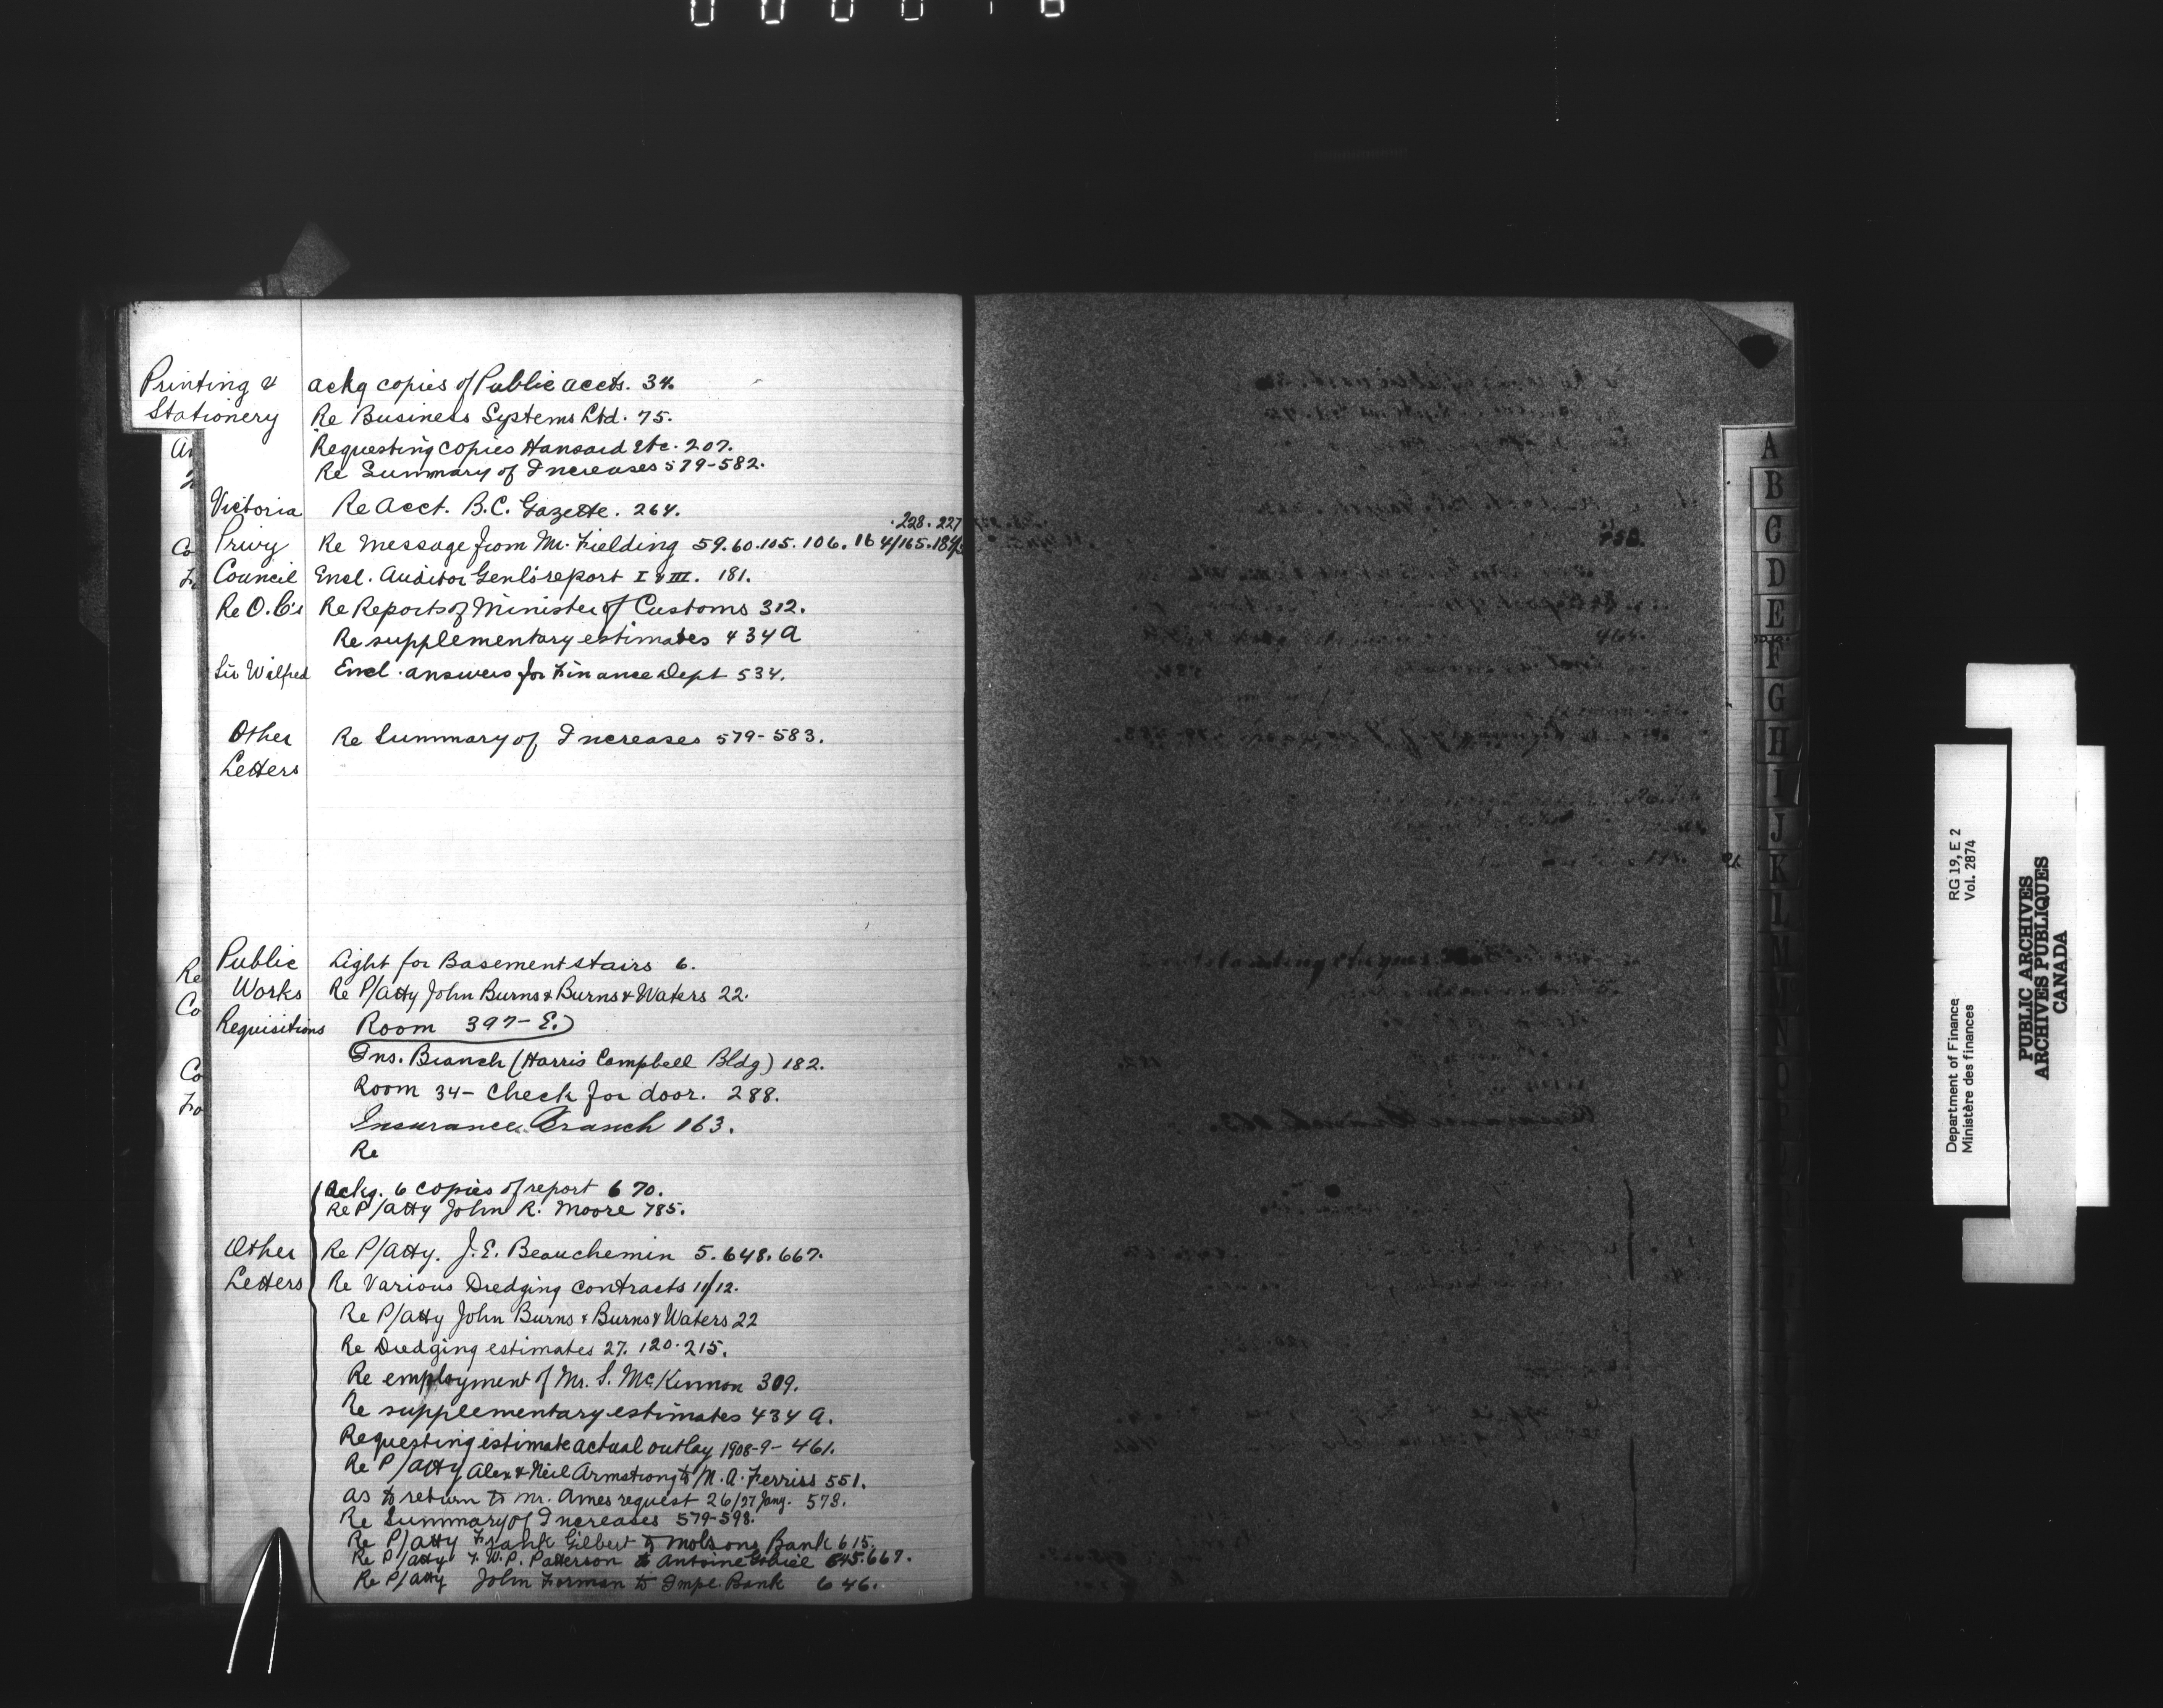 Printing & ackg copies of Public accts. 34.
Stationery Re Business Systems Ltd. 75.
Requesting copies Hansard Etc. 207.
Re Summary of Increases 579-582.
Victoria Re Acct. B.C. Gazette. 264.
. 228. 227
Privy Re Message from Mr. Fielding 59.60.105.106.164/165.184/
Council Encl. Auditor Genl's report I & III. 181.
Re O.C's Re Reports of Minister of Customs 312.
Re supplementary estimates 434A
Sir Wilfred Encl. answers for Finance Dept 534.
Other Re Summary of Increases 579-583.
Letters
Public Light for Basement stairs 6.
Works Re P/atty John Burns & Burns & Waters 22.
Requisitions Room 397-E.)
Ins. Branch (Harris Campbell Bldg) 182.
Room 34- Check for door. 288.
Insurance Branch 163.
Re
Ackg. 6 copies of report 670.
Re P/atty John R. Moore 785.
Other Re P/atty. J.E. Beauchemin 5.648.667.
Letters Re Various Dredging contracts 11/12.
Re P/atty John Burns & Burns & Waters 22
Re Dredging estimates 27. 120.215.
Re employment of Mr. S. McKinnon 309.
Re supplementary estimates 434 A.
Requesting estimate actual outlay 1908-9- 461.
Re P/atty Alex & Neil Armstrong to N.A. Ferriss 551.
As to return to Mr. Ames request 26/27 Jany. 578.
Re Summary of Increases 579-598.
Re P/atty Frank Gilbert to Molsons Bank 615.
Re P/atty F.W.P. Patterson to Antoine 645.667.
Re P/atty John Forman to Impl. Bank 646.
Re
Co
Co
Fo
A
B
C
D
E
F
G
H
I
J
K
L
M
N
O
P
RG 19, E 2
Vol. 2874
Department of Finance
Ministère des finances
PUBLIC ARCHIVES
ARCHIVES PUBLIQUES
CANADA